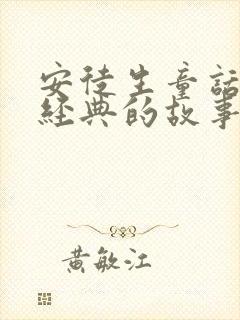 安徒生童話
經典的故事
黃敏江